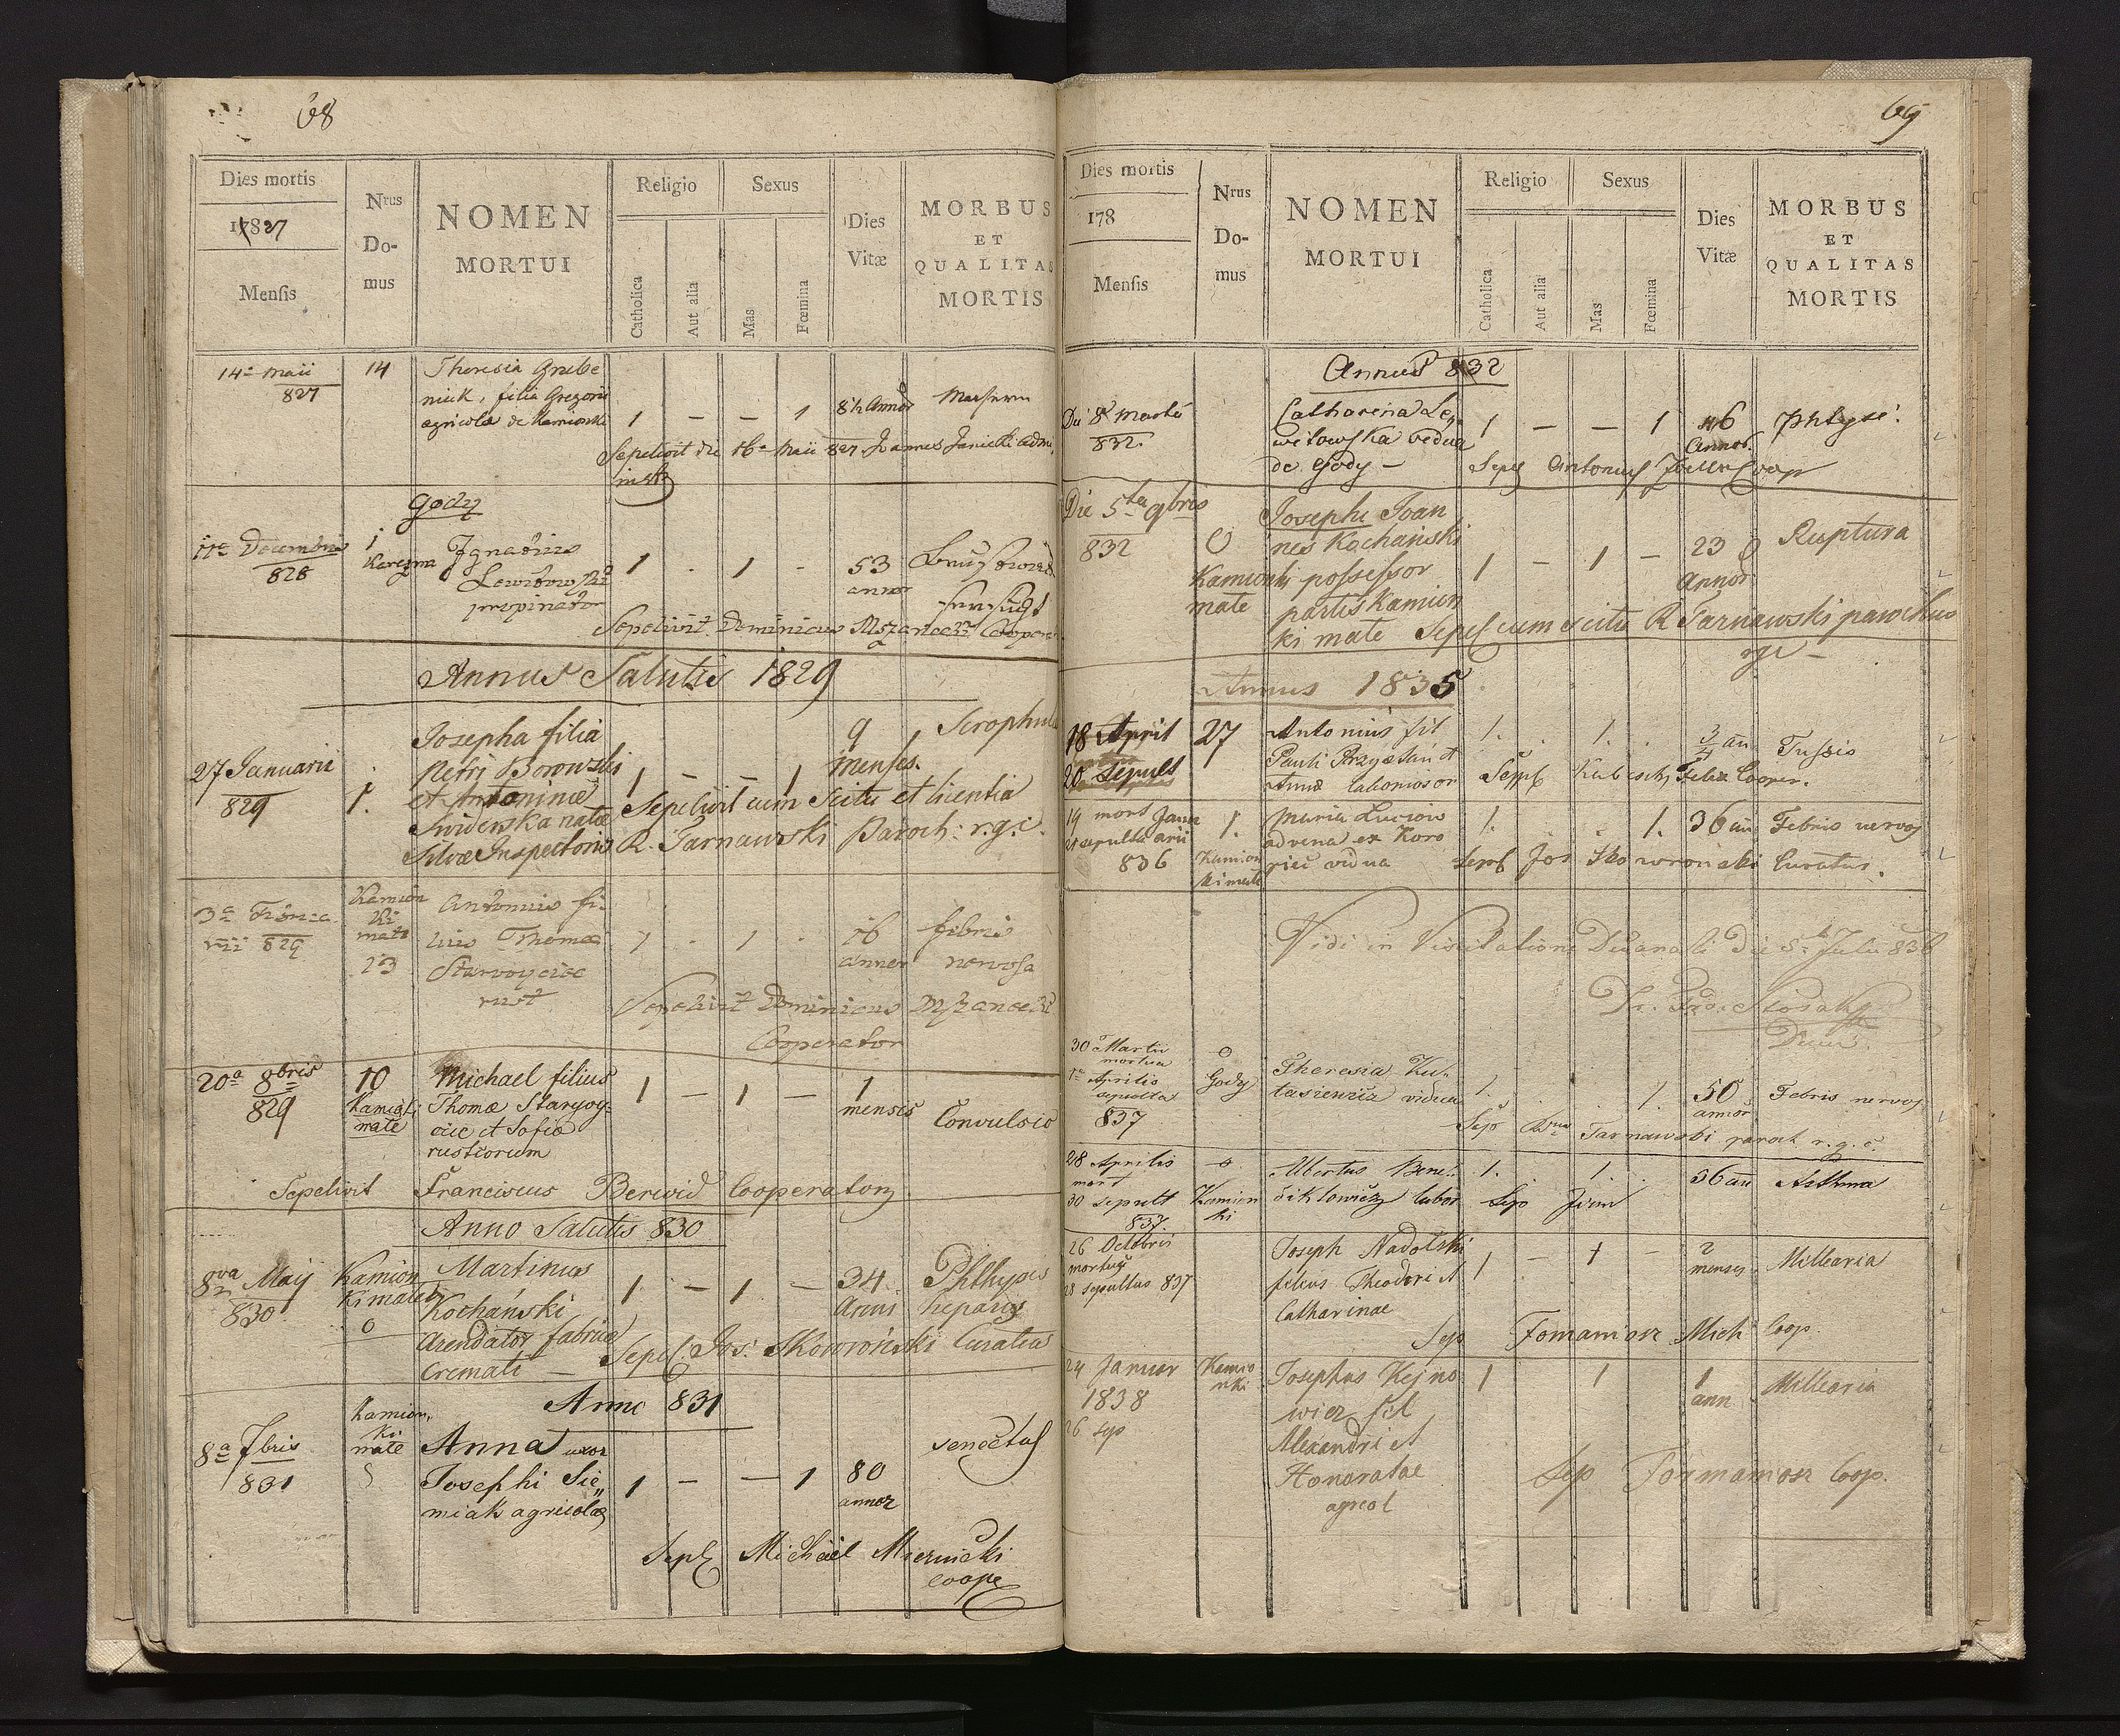 68
Dies mortis
17827
Mensis
Nrus
Do-
mus
NOMEN
MORTUI
Religio
Catholica
Aut alia
Sexus
Mas
Fœmina
Dies
Vitæ
MORBUS
ET
QUALITAS
MORTIS
14a Maii
827
14
Theresia Grube
niuk, filia Gregorii
agricola de Kamionki
1 — — 1
8½ Annor
Sepelivit die 16a Maii 827 Joannes Janicki admi
nistr
Gody
11a Decembris
828
1
Karczma
Ignatius
Lewitowski
propinator
1 - 1 -
53
annor
Sepelivit Dominicus Mszanecki Cooper
Annus Salutis 1829
27 Januarii
829
1.
Josepha filia
Petri Borowski
et Antoninæ
Swiderska natæ
Silvæ Inspectoris
1 — — 1
9
menses.
Scrophula
Sepelivit cum scitu et licentia
R. Tarnawski Paroch: r.g.c.
3a Februa
rii 829
Kamion
ki
mate
13
Antonius fi-
lius Thomæ
Staroyciec
rust
1 - 1 -
16
annor
febris
nervosa
Sepelivit Dominicus Mszanecki
Cooperator
20a 8bris
829
10
Kamionki
mate
Michael filius
Thomæ Staryoy-
ciec et Sofiæ
rusticorum
1 — 1 —
1
mensis
Convulsio
Sepelivit Franciscus Berwid Cooperator
Anno Salutis 830
8va Maij
830
Kamion
ki małe
0
Martinus
Kochański
Arendator fabricæ
Cremati
1 — 1 —
34
Anni
Phthysis
heparis
Sepel. Jos: Skowroński Curatus
Anno 831
8a 7bris
831
Kamion,
ki
mate
Anna uxor
Josephi Sie„
miak agricolæ
1 — — 1
80
annor
senectus
Sepl Michael Miernicki
coope
69
Dies mortis
178
Mensis
Nrus
Do-
mus
NOMEN
MORTUI
Religio
Catholica
Aut alia
Sexus
Mas
Fœmina
Dies
Vitæ
MORBUS
ET
QUALITAS
MORTIS
Annus 832
Die 8 Martii
832.
Catharina Le„
witowska vedua
de Gody —
1 — — 1
46
Annor
Phtysi
Sepel Antonius Coop
Die 5ta 9bris
832
0
Kamionki
mate
Josephi Joan
nes Kochański
possessor
partis Kamion
ki mate
1 — 1 —
23
Annor
Ruptura
Sepel cum scitu R Tarnawski parochus
rgc —
Annus 1835
18 April
20 Sepult
27
Antonius fil
Pauli Przystań et
Annæ laboriosor
1. . 1. .
3/4 an
Tussis
Sepel Kubischy Felix Cooper.
19 mort Janu
21 sepulta arii
836
1.
Kamion
ki mate
Maria Luciow
advena ex Koro
piec vidua
1. . . 1.
36 an
Febris nervos
Sepel Jos Skowronski Curatus.
Vidi in Visitatione Decanali Die 5a Julii 836
30 Martii
mortua
1a Aprilis
sepulta
837
0
Gody
Theresia Ku-
tasiewicz vidua
1. . . 1.
50
annor
Febris nervos
Sep Rmus Tarnawski paroch r.g.c.
28 Aprilis
mort
30 sepult
837.
0.
Kamion
ki
Albertus Bene-
diktowicz labor
1. 1.
36 an
Asthma
Sep Idem
26 Octobris
mortuus
28 sepultus 837
Joseph Nadolski
filius Theodori et
Catharinae
1 — 1 —
2
menses
Millearia
Sep Tomaniosz Mich Coop.
24 Januar
1838
26 sep
Kamio
nki
Josephus Kejno
wicz fil
Alexandri et
Honoratae
agricol
1 1
1
ann
Millearia
Sep Tormaniosz Coop.